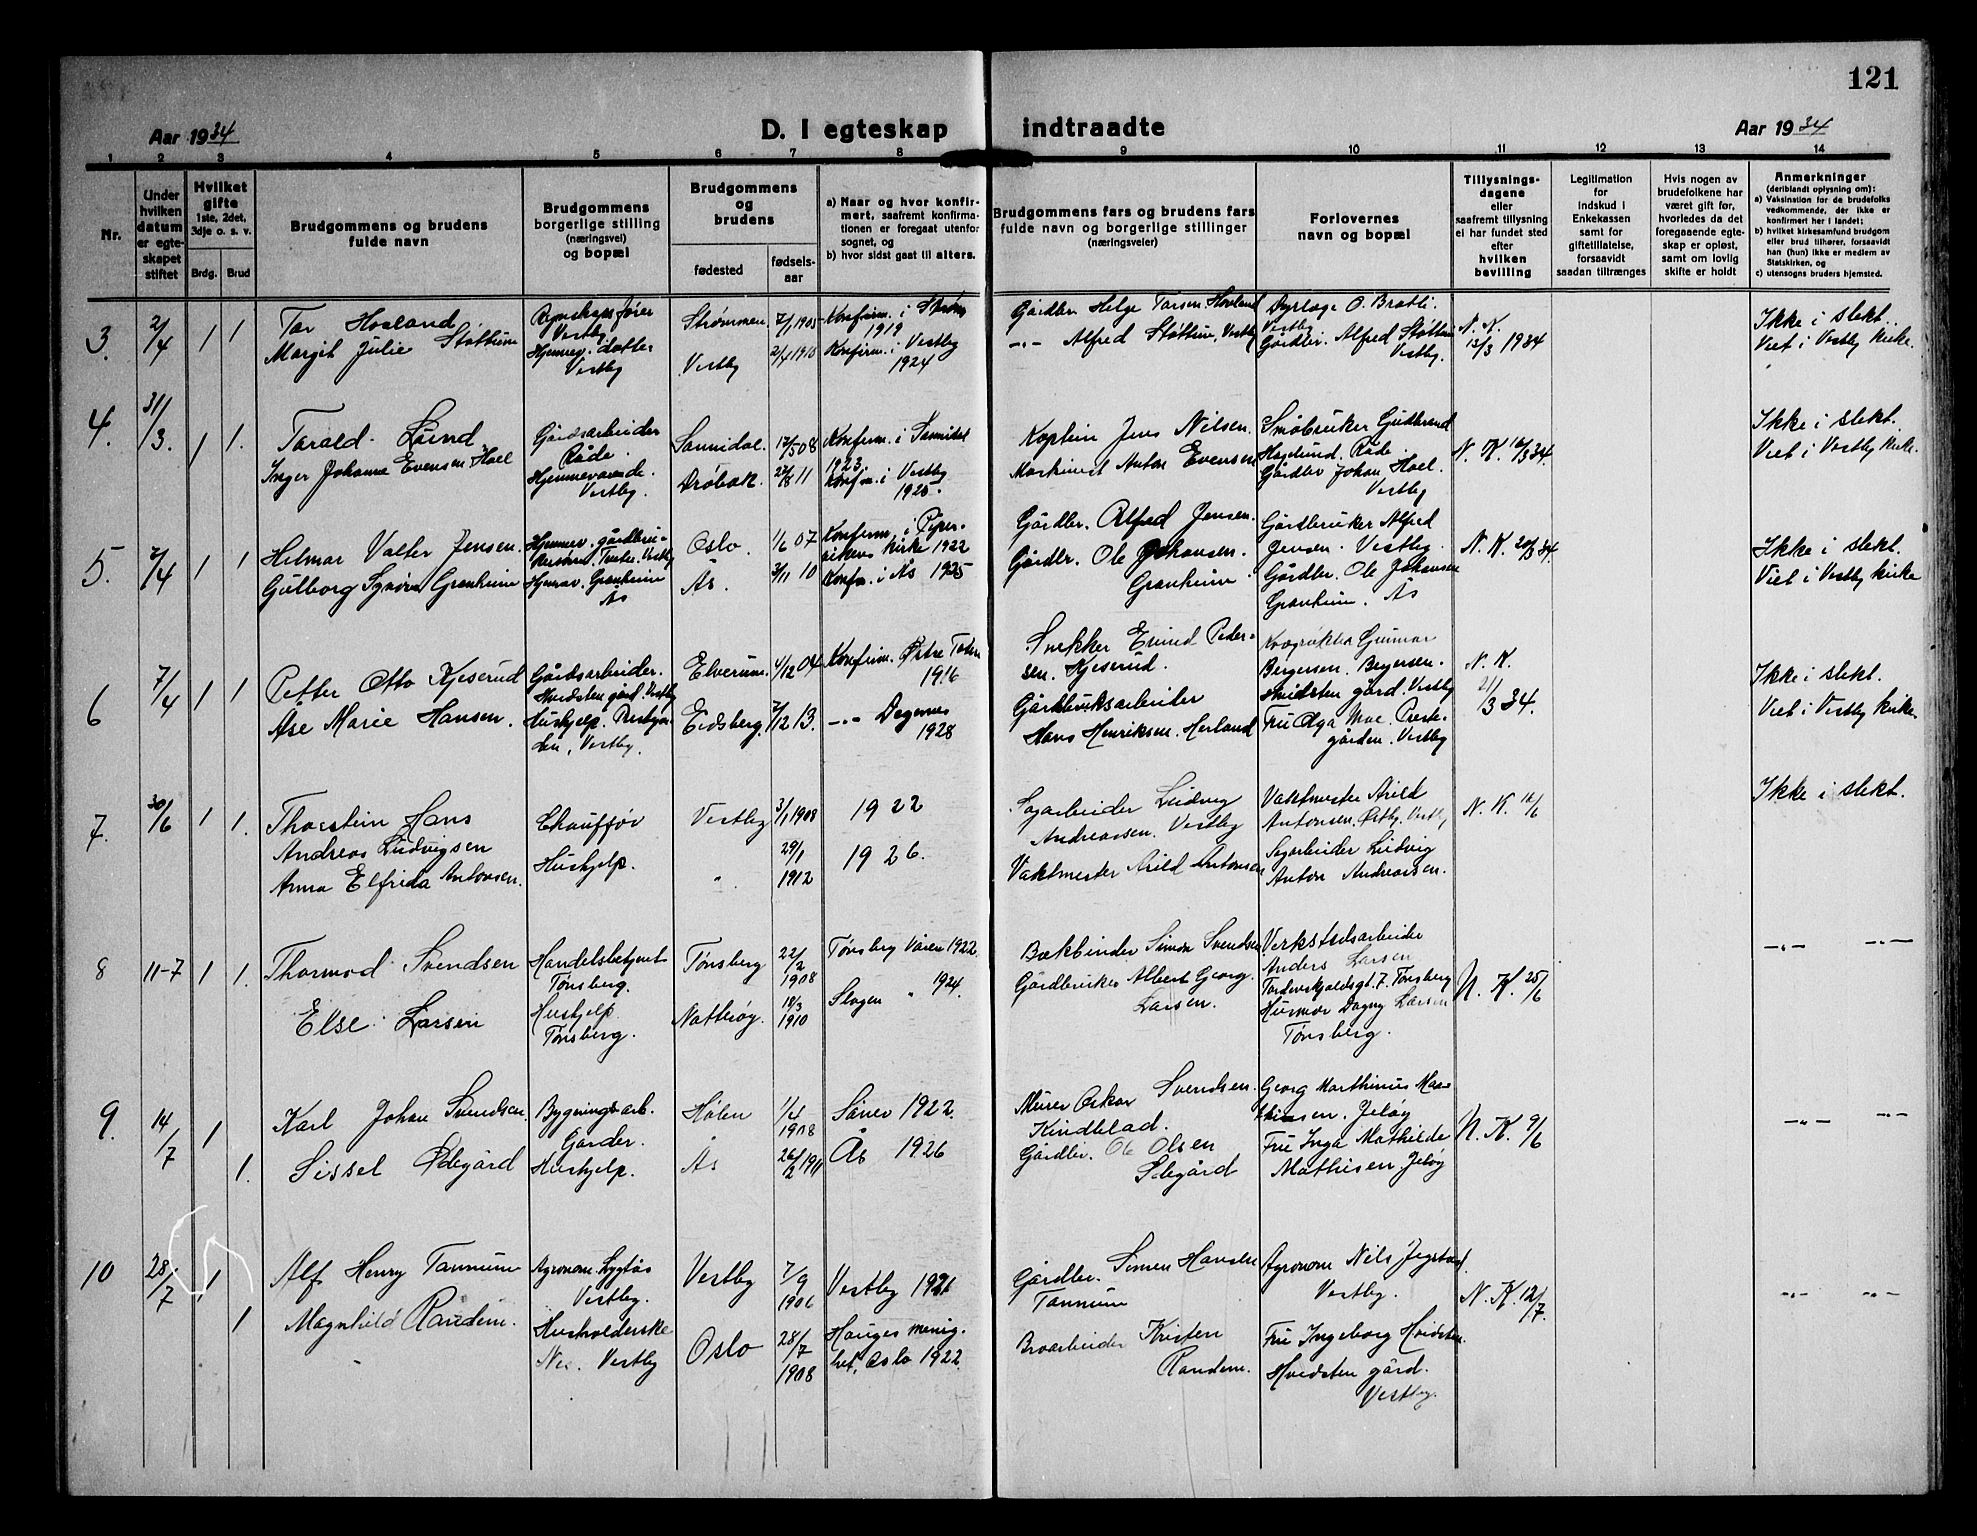 121
Aar 1934
D. I egteskap indtraadte
Aar 1934
1 2 3 4 5 6 7 8 9 10 11 12 13 14
Nr.
Under hvilken datum er egteskapet stiftet
Hvilket gifte 1ste, 2det, 3dje o. s. v.
Brdg. Brud
Brudgommens og brudens fulde navn
Brudgommens borgerlige stilling (næringsvei) og bopæl
Brudgommens og brudens
fødested
fødselsaar
a) Naar og hvor konfirmert, saafremt konfirmationen er foregaat utenfor sognet, og
b) hvor sidst gaat til alters.
Brudgommens fars og brudens fars fulde navn og borgerlige stillinger (næringsveier)
Forlovernes navn og bopæl
Tillysningsdagene eller saafremt tillysning ei har fundet sted efter hvilken bevilling
Legitimation for indskud i Enkekassen samt for giftetillatelse, forsaavidt saadan tiltrænges
Hvis nogen av brudefolkene har været gift før, hvorledes da det foregaaende egteskap er opløst, samt om lovlig skifte er holdt
Anmerkninger (deriblandt oplysning om):
a) Vaksination for de brudefolks vedkommende, der ikke er konfirmert her i landet;
b) hvilket kirkesamfund brudgom eller brud tilhører, forsaavidt han (hun) ikke er medlem av Statskirken, og
c) utensogns bruders hjemsted.
3. 2/4 1 1
Tor Hovland
Margit Julie Støttum
Regnskapsfører
Vestby
Hjemmev. datter
Vestby
Strømmen 7/1 1905
Vestby 2/4 1910
Konfirm. i
1919
Konfirm. i Vestby
1924
Gårdbr. Helge Hovland
-"- Alfred Støttum, Vestby
Dyrlæge O. Bratli.
Vestby
Gårdbr. Alfred Støttum
Vestby.
N. K.
13/3 1934
Ikke i slekt.
Viet i Vestby kirke.
4. 31/3. 1 1.
Tarald Lund
Inger Johanne Evensen Hoel
Gårdsarbeider
Råde.
Hjemmeværende.
Vestby.
Sannidal. 17/5 08
Drøbak. 27/8 11
Konfirm. i Sannidal
1923.
Konfm. i Vestby
1925.
Kaptein Jens Nilsen.
Maskinist Anton Evensen
Småbruker Gudbrand
Haglund. Råde.
Gårdbr Johan Hoel.
Vestby
N. K. 16/3 34.
Ikke i slekt.
Viet i Vestby kirke.
5. 7/4 1 1
Hilmar Valter Jensen.
Gulborg Synøve Granheim
Hjemmev. gårdbru-
Vestby
Hjemmev. Granheim
Ås
Oslo. 1/6 07
Ås. 3/11 10
Konfirm. i Piper-
vikens kirke 1922
Konfm. i Ås 1925
Gårdbr. Alfred Jensen.
Gårdbr. Ole Johansen.
Granheim.
Gårdbruker Alfred
Jensen. Vestby.
Gårdbr. Ole Johansen
Granheim. Ås
N. K. 20/3 34.
Ikke i slekt.
Viet i Vestby kirke
6 7/4 1 1
Petter Otto Kjeserud
Åse Marie Hansen.
Gårdsarbeider.
Hvidsten gård. Vestby
Hushjelp. Prestegår-
den, Vestby.
Elverum. 4/12 04
Eidsberg. 7/12 13.
Konfirm. Østre Toten
1916
-"- Degernes
1928
Snekker Erund Peder-
sen. Kjeserud.
Gårdbruksarbeider
Hans Henriksen. Herland
Gunnar
Bergersen.
Hvidsten gård. Vestby
Fru Olga Moe. Preste-
gården. Vestby
N. K.
21/3 34.
Ikke i slekt.
Viet i Vestby kirke.
7. 30/6 1 1.
Thorstein Hans
Andreas Ludvigsen
Anna Elfrida Antonsen.
Chauffør
Hushjelp.
Vestby 3/1 1908
" 29/1 1912
1922
1926.
Sagarbeider Ludvig
Andreassen. Vestby
Vaktmester Arild Antonsen
Vaktmester Arild
Antonsen. Østby. Vestby
Sagarbeider Ludvig
Anton Andreassen.
N. K. 16/6
Ikke i slekt.
8 11-7 1 1.
Thormod Svendsen
Else Larsen
Handelsbetjent
Tønsberg.
Hushjelp.
Tønsberg.
Tønsberg 22/2 1908
Nøtterøy. 18/3 1910
Tønsberg Våren 1922.
Slagen " 1924.
Bokbinder Simon Svendsen
Gårdbruker Albert Georg
Larsen.
Verkstedsarbeider
Anders Larsen
Tordenskjoldsgt. 7. Tønsberg
Husmor Dagny Larsen
Tønsberg.
N. K. 25/6
-"- -"-
9. 14/7 1 1.
Karl Johan Svendsen
Sissel Ødegård
Bygningsarb.
Garder.
Hushjelp.
Hølen 1/4 1908
Ås 26/2 1911
Såner 1922.
Ås 1926
Murer Oskar Svendsen.
Kindblad.
Gårdbr. Ole Olsen
Ødegård
Georg Marthinius Ma-
thisen. Jeløy
Fru Inga Mathilde
Mathisen, Jeløy
N. K. 9/6
-"- -"-
10 28/7 1 1
Alf Henry Tannum
Magnhild Randem.
Agronom.
Vestby.
Husholderske
Vestby
Vestby 7/9 1906
Oslo 28/7 1908
Vestby 1921
Hauges menig-
het, Oslo 1922.
Gårdbr. Simen Hansen
Tannum
Broarbeider Kristen
Randem.
Agronom Nils Jegstad
Vestby.
Fru Ingeborg Hvidsten
Hvidsten gård.
Vestby.
N. K. 12/7.
-"- -"-